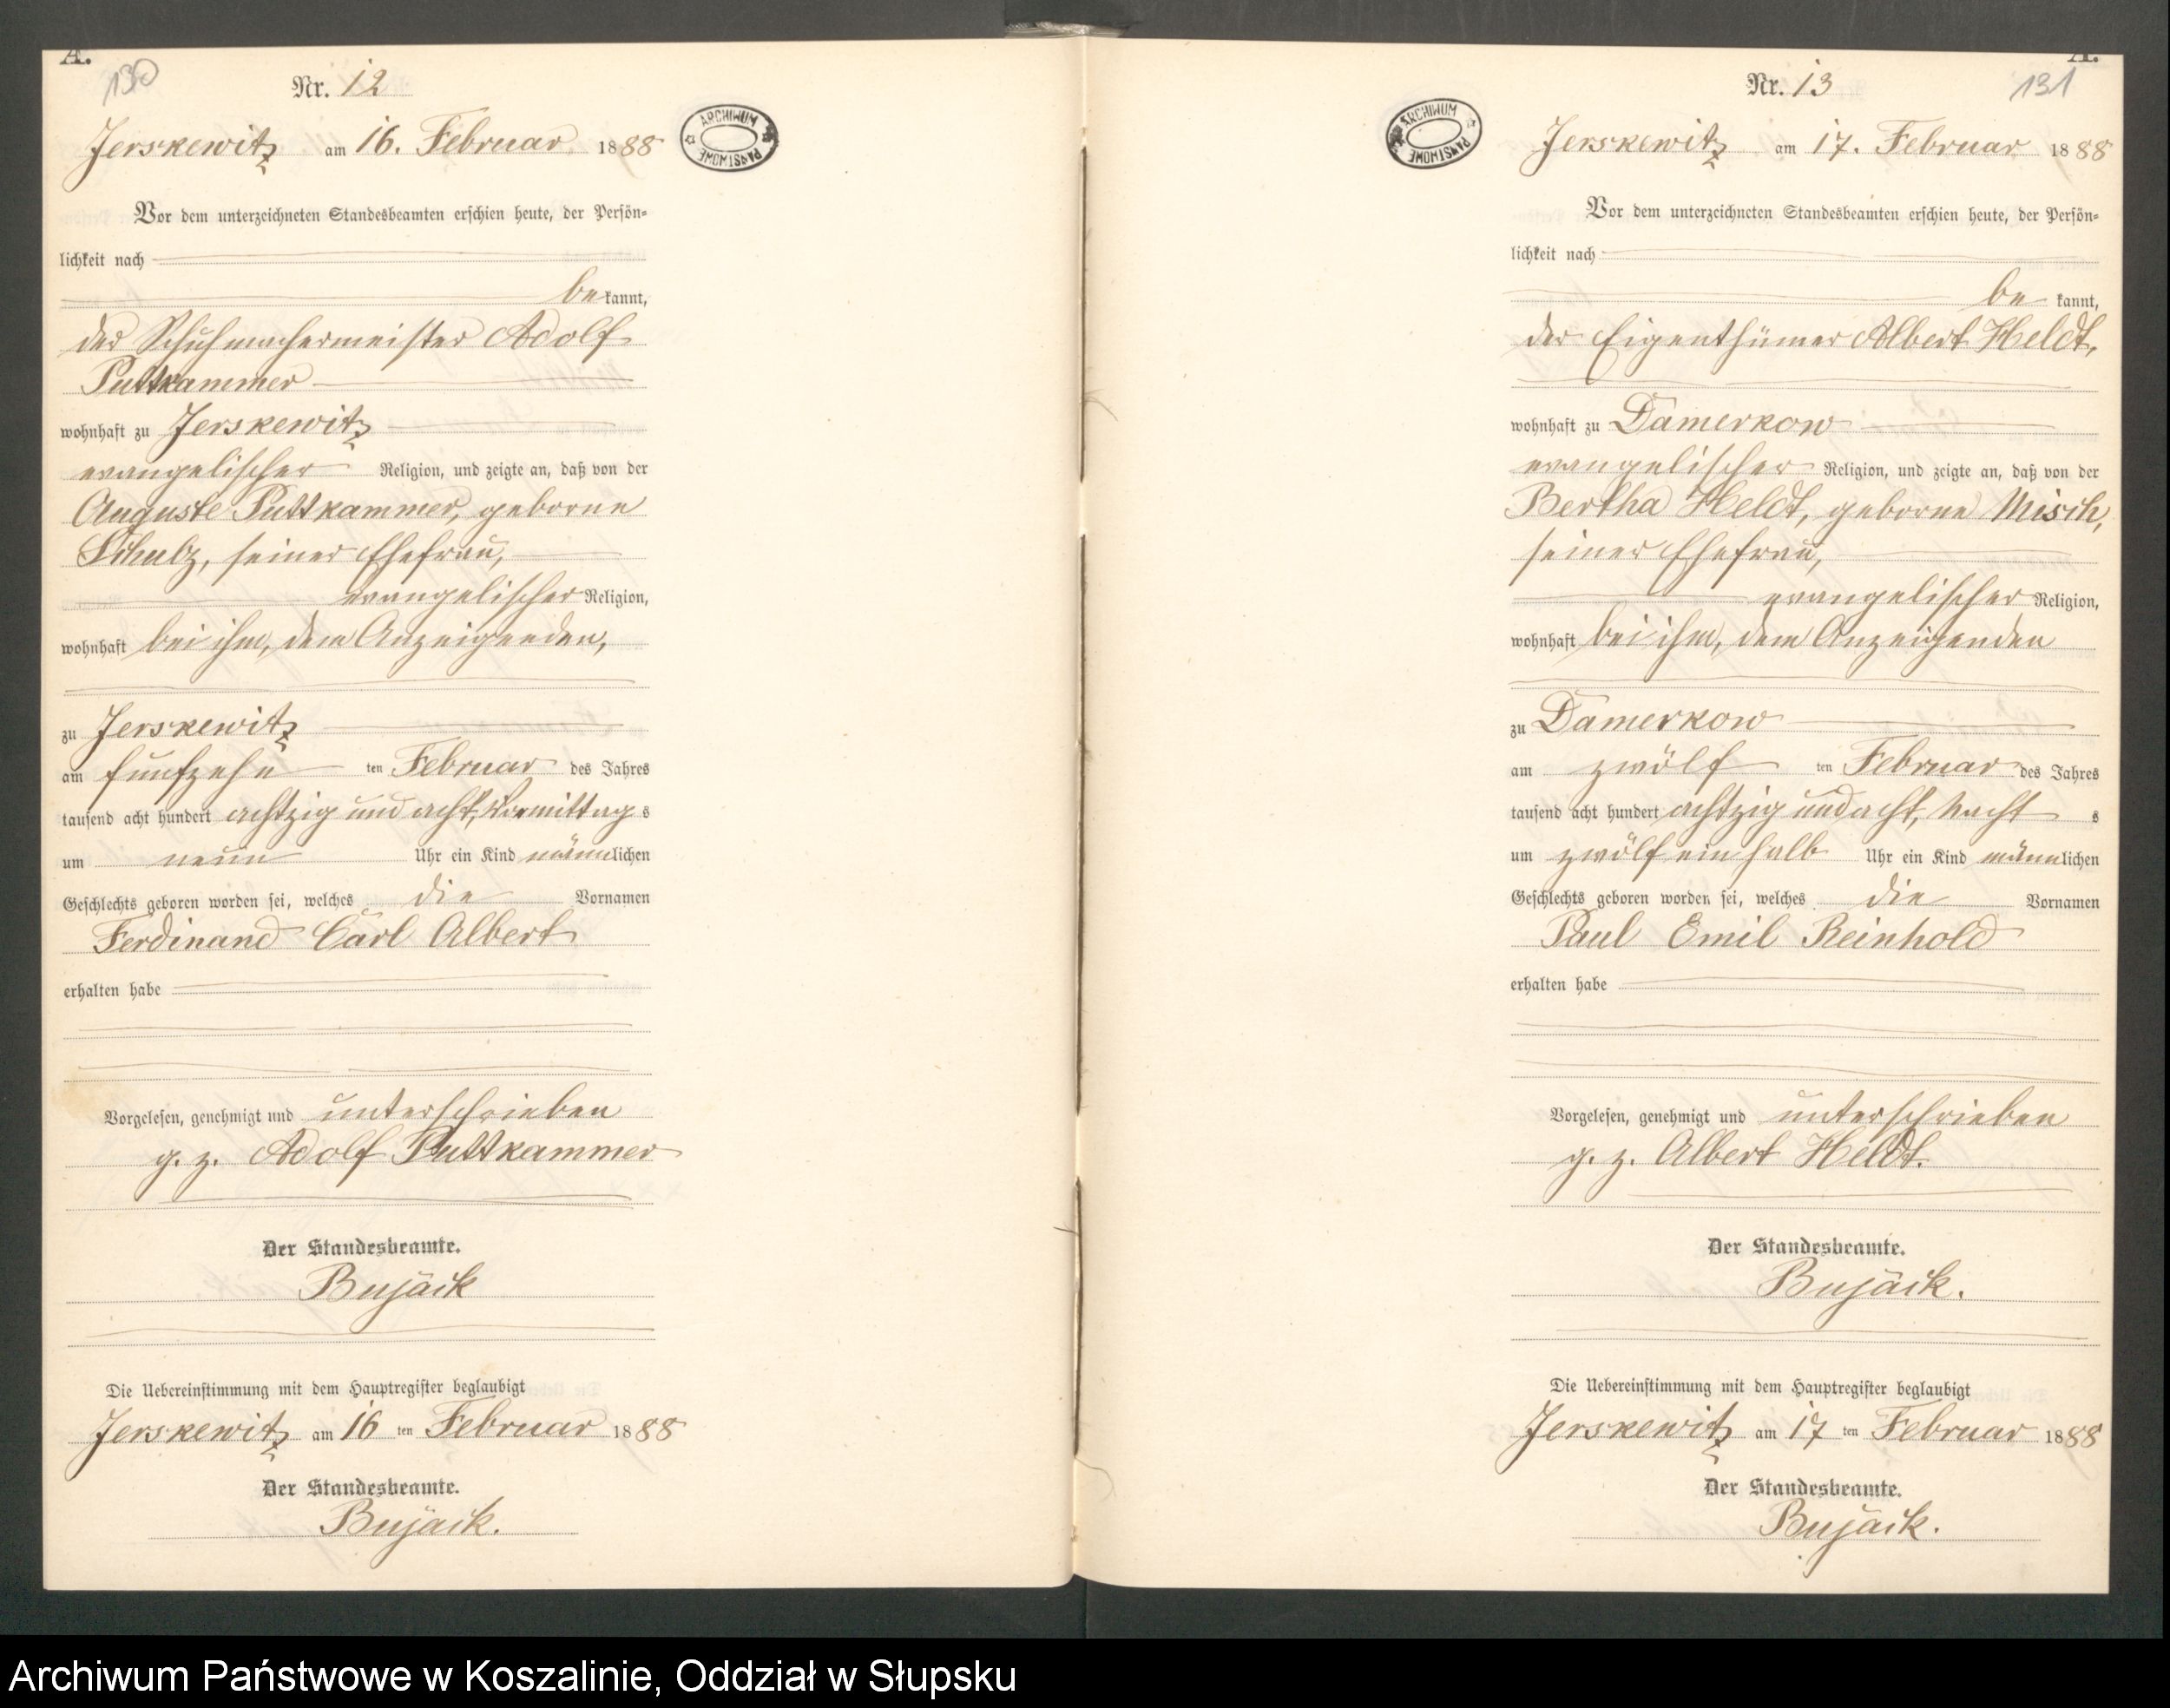 A.
130
Nr. 12
ARCHIWUM PAŃSTWOWE
Jerskewitz am 16. Februar 1888
Vor dem unterzeichneten Standesbeamten erschien heute, der Persön-
lichkeit nach
bekannt,
der Schuhmachermeister Adolf
Puttkammer
wohnhaft zu Jerskewitz
evangelischer Religion, und zeigte an, daß von der
Auguste Puttkammer, geborne
Schulz, seiner Ehefrau,
evangelischer Religion,
wohnhaft bei ihm, dem Anzeigenden,
zu Jerskewitz
am fünfzehn ten Februar des Jahres
tausend acht hundert achtzig und acht, Vormittags
um neun Uhr ein Kind männlichen
Geschlechts geboren worden sei, welches die Vornamen
Ferdinand Carl Albert
erhalten habe
Vorgelesen, genehmigt und unterschrieben
g. z. Adolf Puttkammer
Der Standesbeamte.
Bujack
Die Uebereinstimmung mit dem Hauptregister beglaubigt
Jerskewitz am 16 ten Februar 1888
Der Standesbeamte.
Bujack.
A.
131
Nr. 13
ARCHIWUM PAŃSTWOWE
Jerskewitz am 17. Februar 1888
Vor dem unterzeichneten Standesbeamten erschien heute, der Persön-
lichkeit nach
be kannt,
der Eigenthümer Albert Heldt,
wohnhaft zu Damerkow
evangelischer Religion, und zeigte an, daß von der
Bertha Heldt, geborne Misch,
seiner Ehefrau,
evangelischer Religion,
wohnhaft bei ihm, dem Anzeigenden
zu Damerkow
am zwölf ten Februar des Jahres
tausend acht hundert achtzig und acht, Nacht s
um zwölf ein halb Uhr ein Kind männlichen
Geschlechts geboren worden sei, welches die Vornamen
Paul Emil Reinhold
erhalten habe
Vorgelesen, genehmigt und unterschrieben
g. z. Albert Heldt.
Der Standesbeamte.
Bujack.
Die Uebereinstimmung mit dem Hauptregister beglaubigt
Jerskewitz am 17 ten Februar 1888
Der Standesbeamte.
Bujack.
Archiwum Państwowe w Koszalinie, Oddział w Słupsku